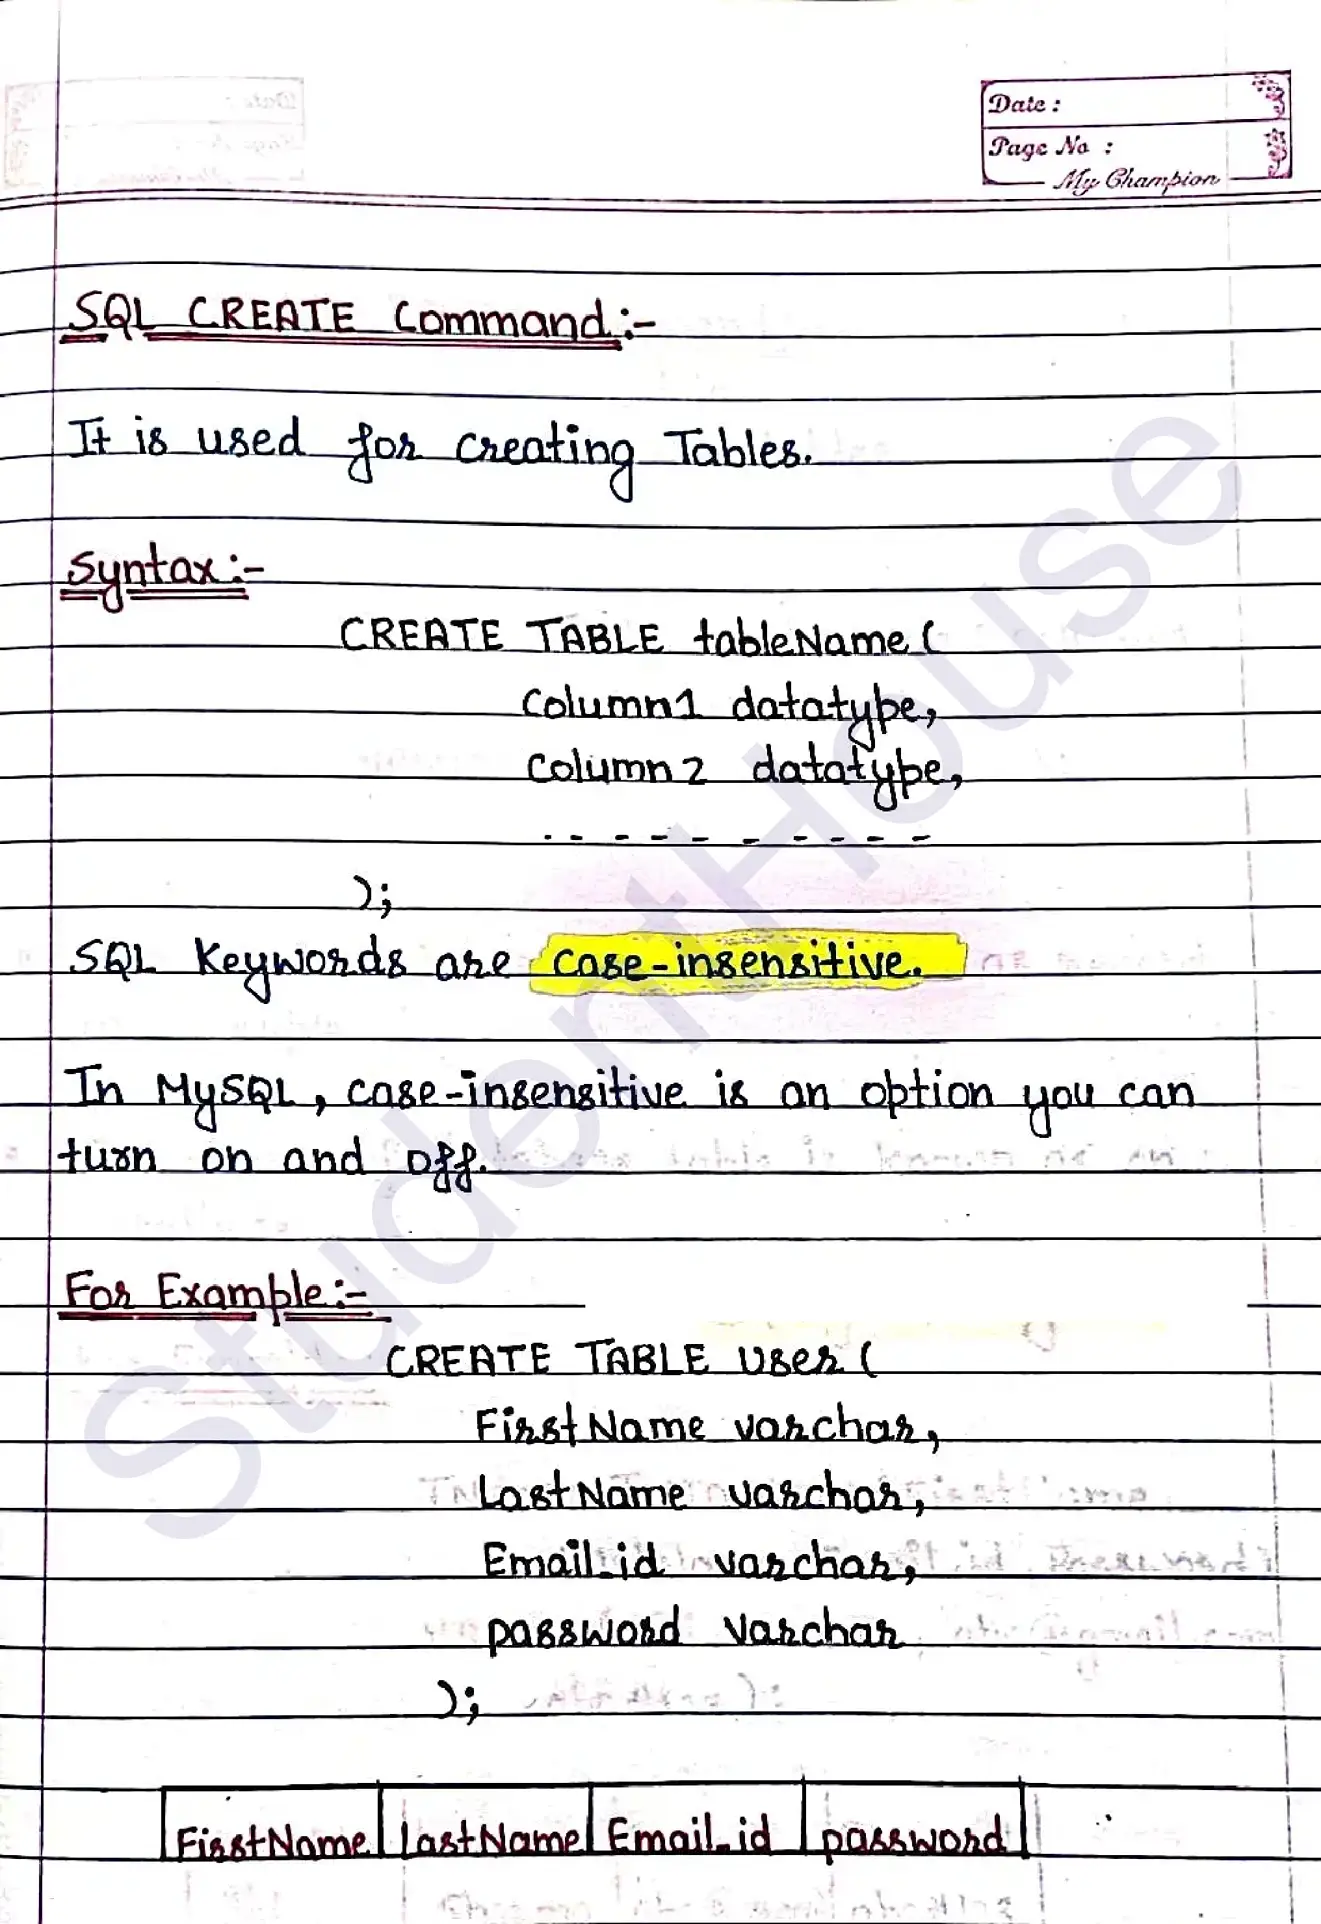 Date :
Page No :
My Champion
SQL CREATE Command:-
It is used for creating Tables.
Syntax:-
CREATE TABLE tableName (
Column1 datatype,
Column2 datatype,
- - - - - - - - - -
);
SQL Keywords are case-insensitive.
In MySQL, case-insensitive is an option you can
turn on and off.
For Example:-
CREATE TABLE user (
FirstName varchar,
LastName varchar,
Email_id varchar,
password varchar
);
FirstName LastName Email_id password
StudentHouse